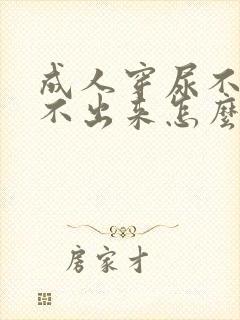 成人穿尿不
不出来怎麼
房家才